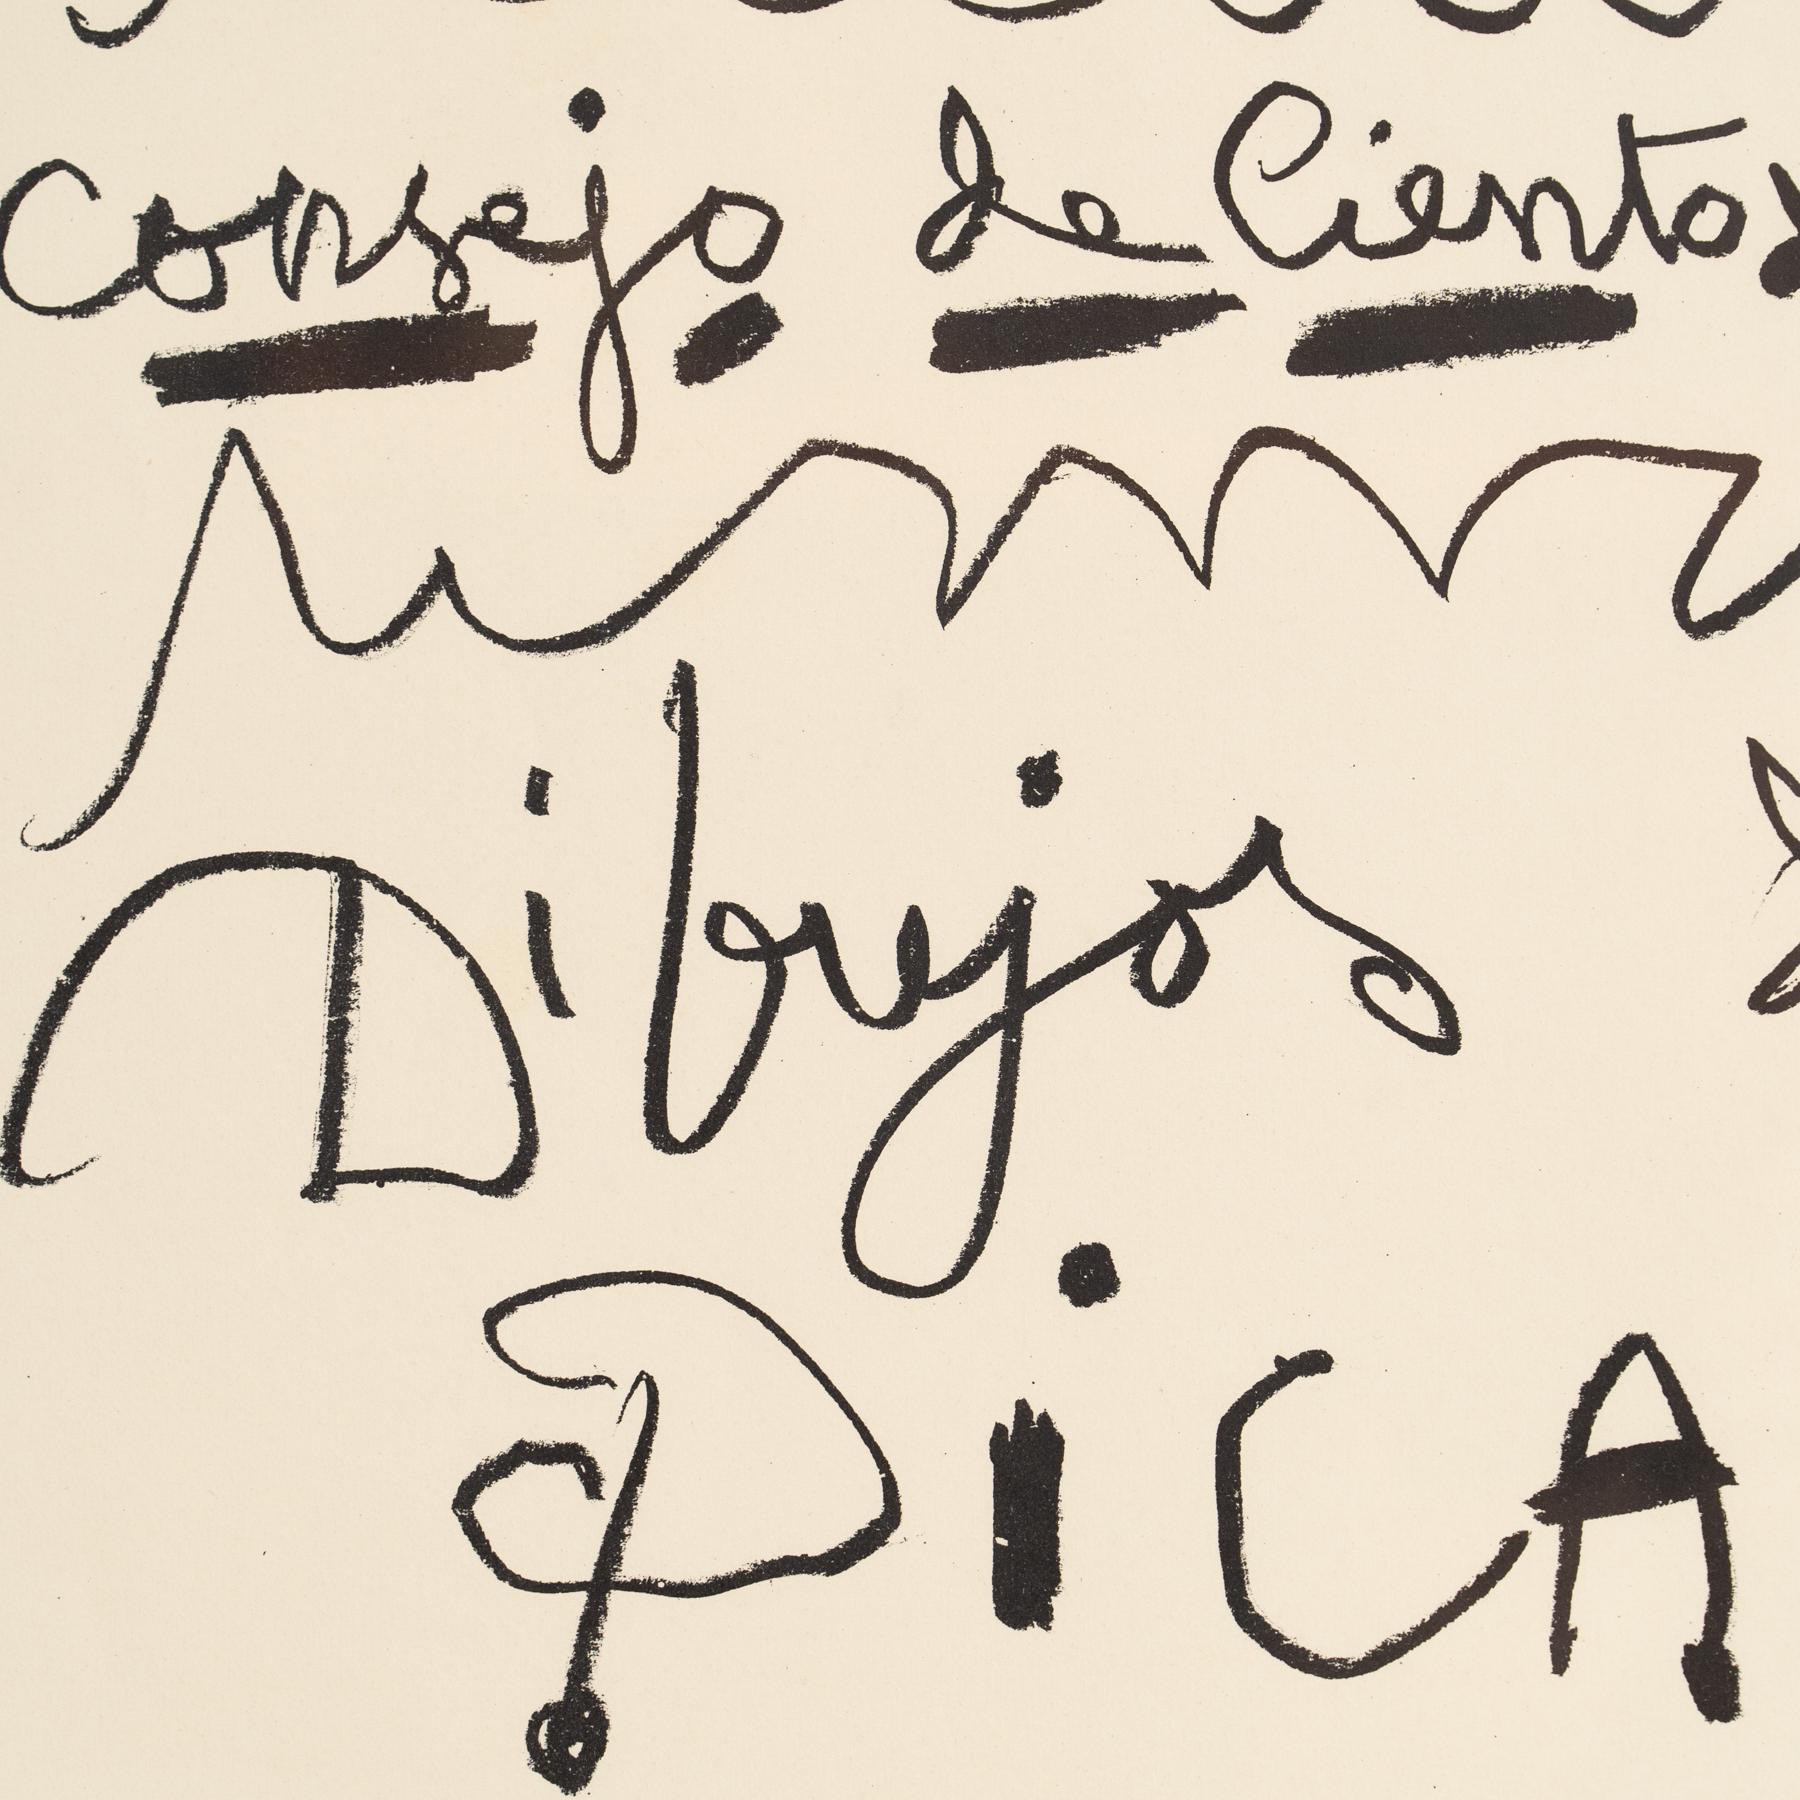 Consejo de Ciento
Dibujos
PiCA